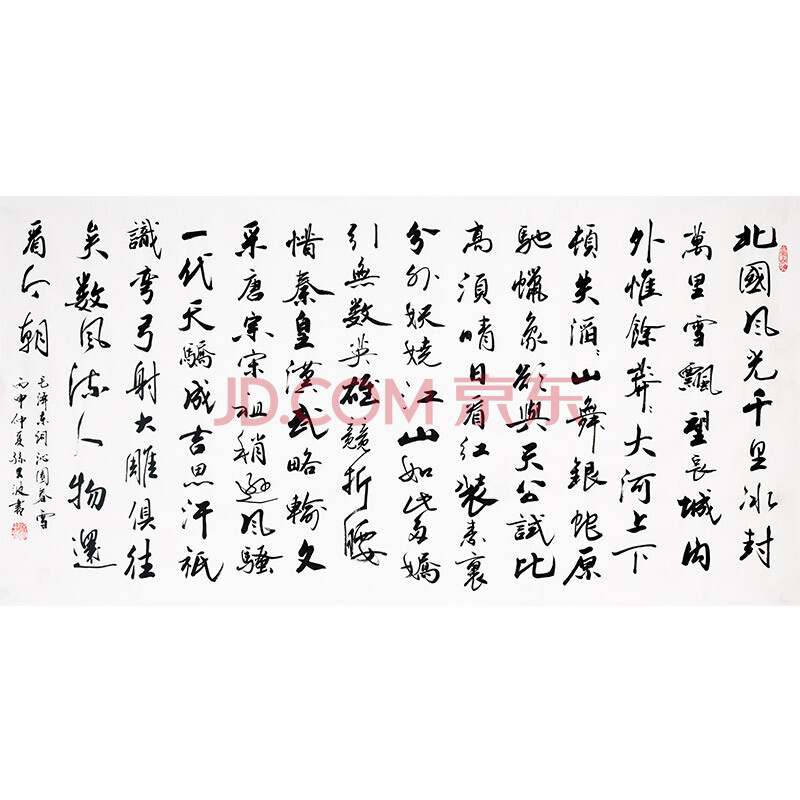 北國风光千里冰封
萬里雪飄望長城内
外惟餘莽々大河上下
頓失滔々山舞銀蛇原
馳蠟象欲與天公試比
高須晴日看红装素裹
分外妖嬈江山如此多嬌
引無数英雄競折腰
惜秦皇漢武略輸文
采唐宗宋祖稍遜风騷
一代天驕成吉思汗祇
識彎弓射大雕俱往
矣数风流人物還
看今朝
毛泽東詞沁園春雪
丙申仲夏孫 波書
JD.COM 京东